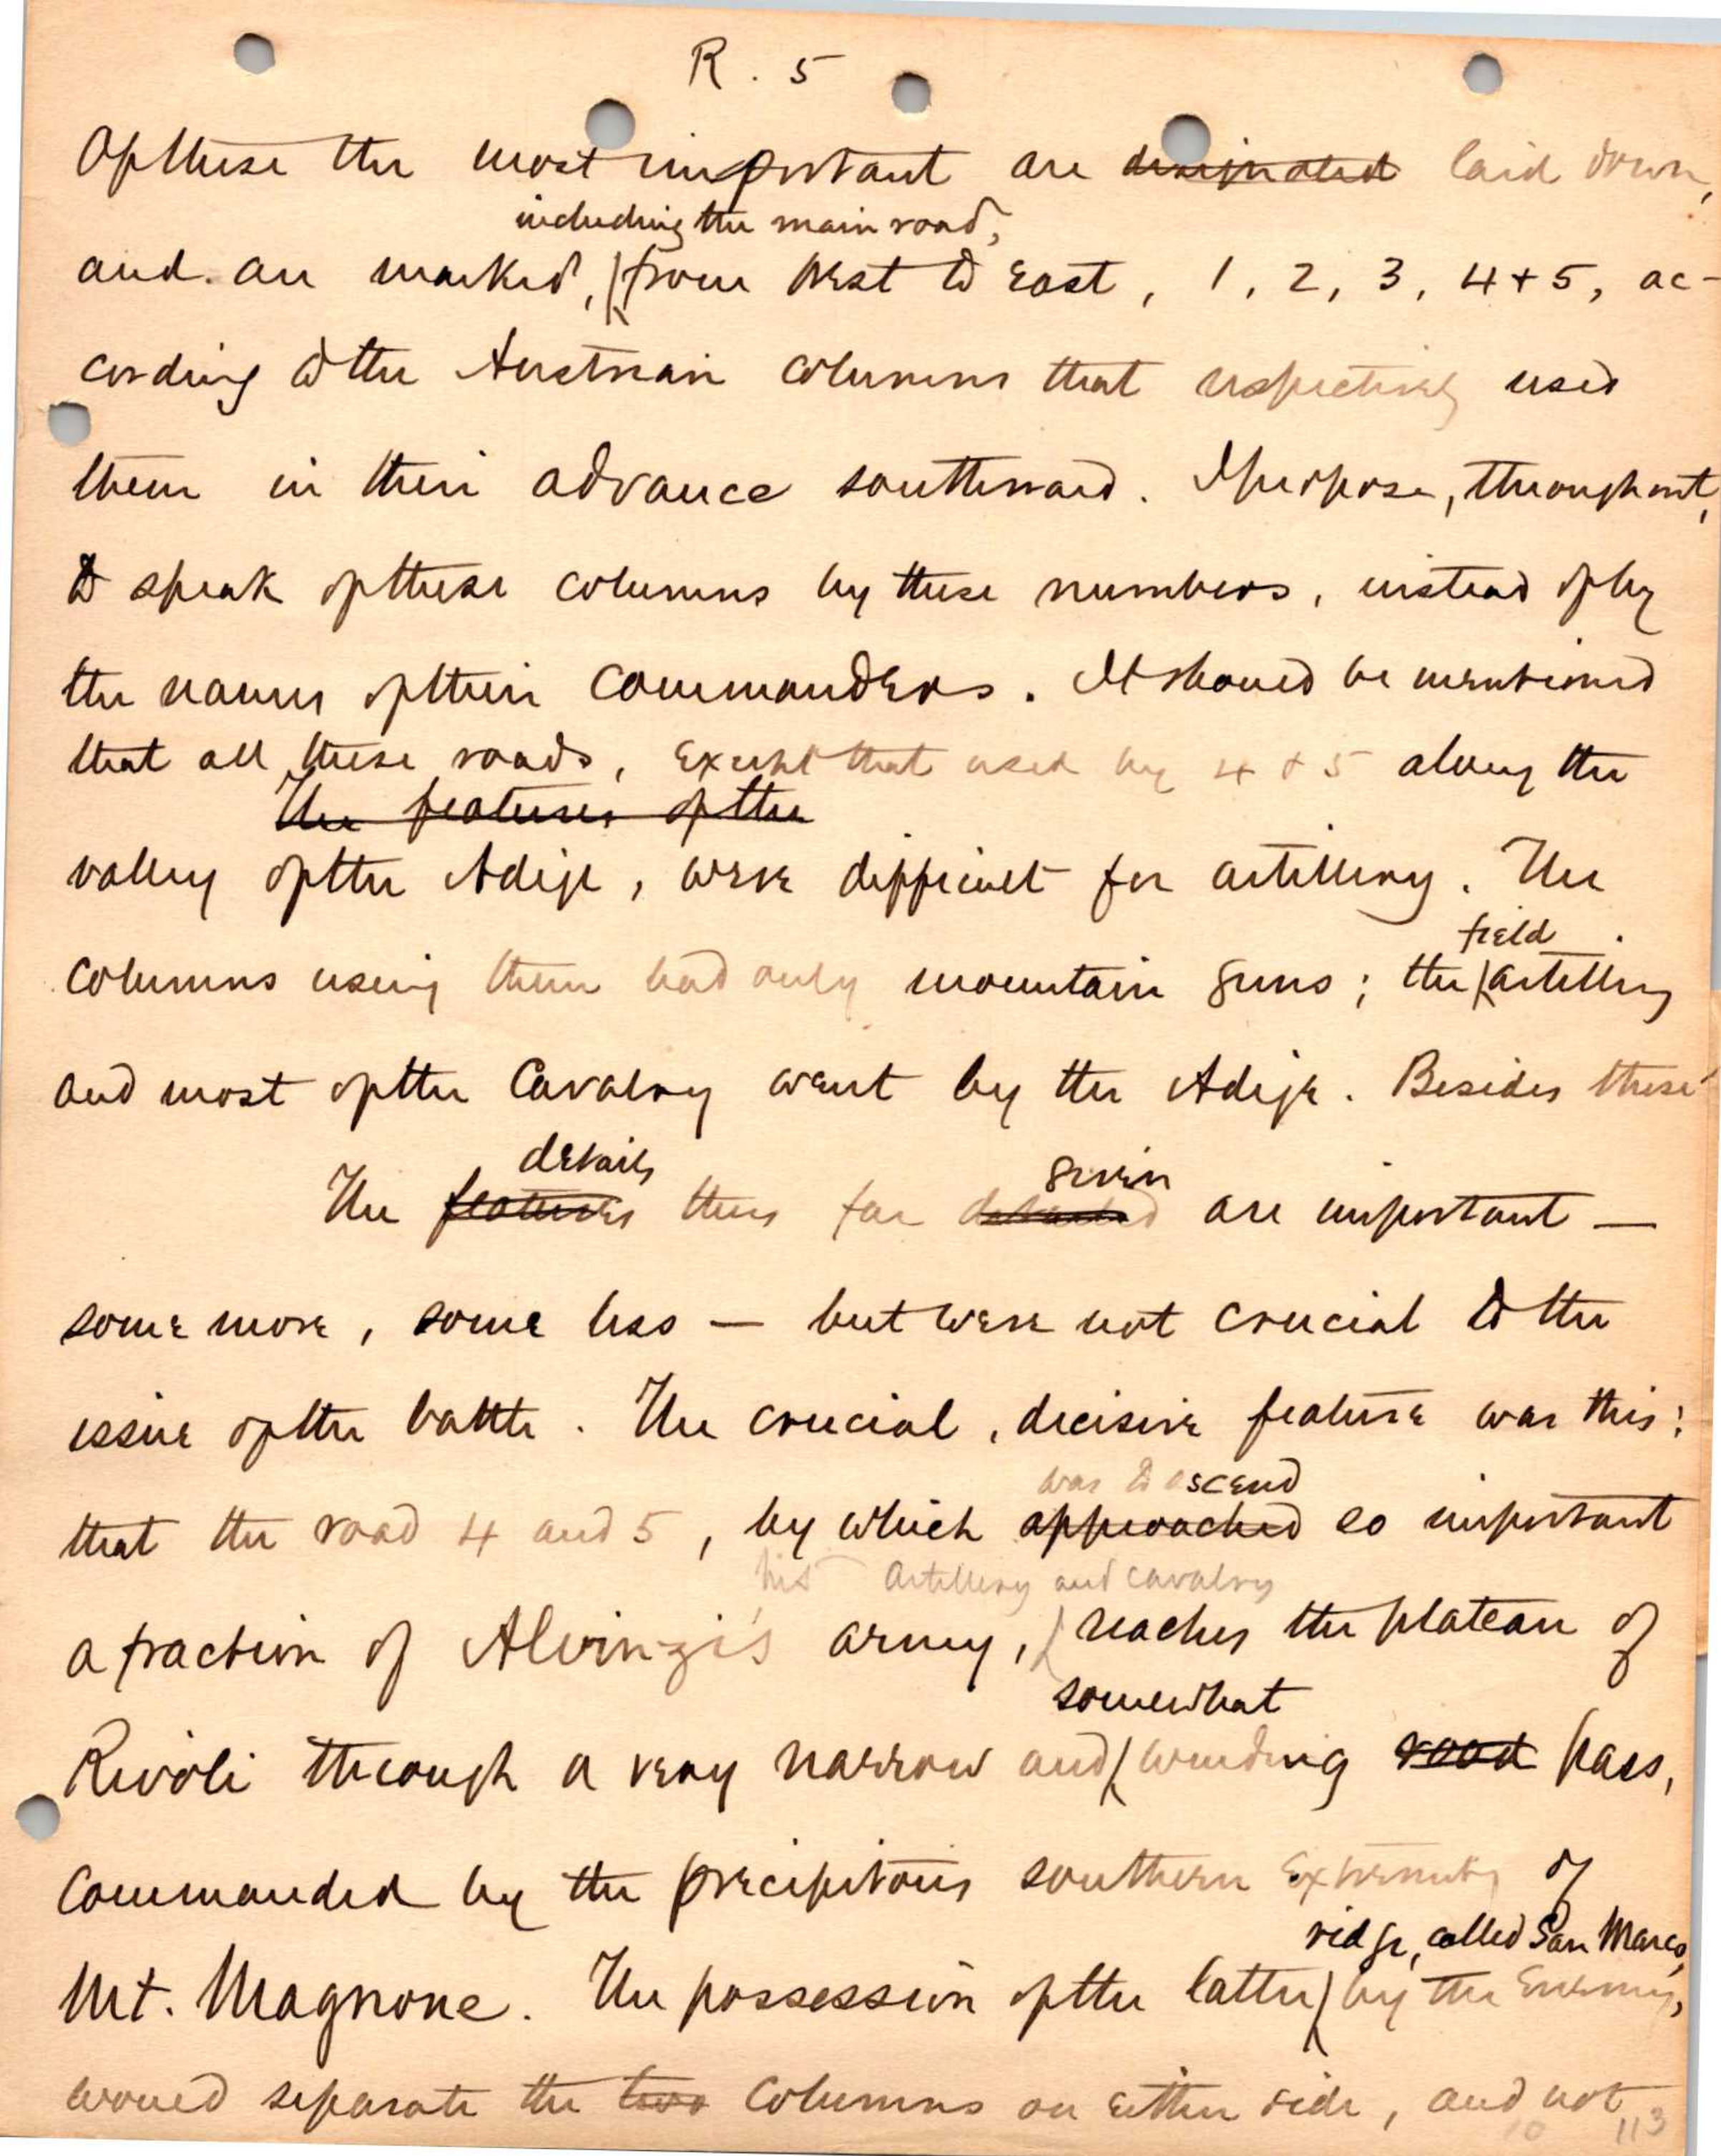 R. 5
Of these the most important are designated laid down,
including the main road,
and are marked, from West to East, 1, 2, 3, 4 + 5, ac-
cording to the Austrian columns that respectively used
them in their advance southward. I purpose, throughout,
to speak of these columns by these numbers, instead of by
the names of their commanders. It should be mentioned
that all these roads, except that used by 4 & 5 along the
The features of the
valley of the Adige, were difficult for artillery. The
field
columns using them had only mountain guns; the artillery
and most of the Cavalry went by the Adige. Besides these
details given
The features thus far are important —
some more, some less — but were not crucial to the
issue of the battle. The crucial, decisive feature was this:
was to ascend
that the road 4 and 5, by which approached so important
his artillery and cavalry
a fraction of Alvinzi's army, reaches the plateau of
somewhat
Rivoli through a very narrow and winding road pass,
commanded by the precipitous southern extremity of
ridge, called San Marco,
Mt. Magnone. The possession of the latter by the Enemy,
would separate the two columns on either side, and not
10 113